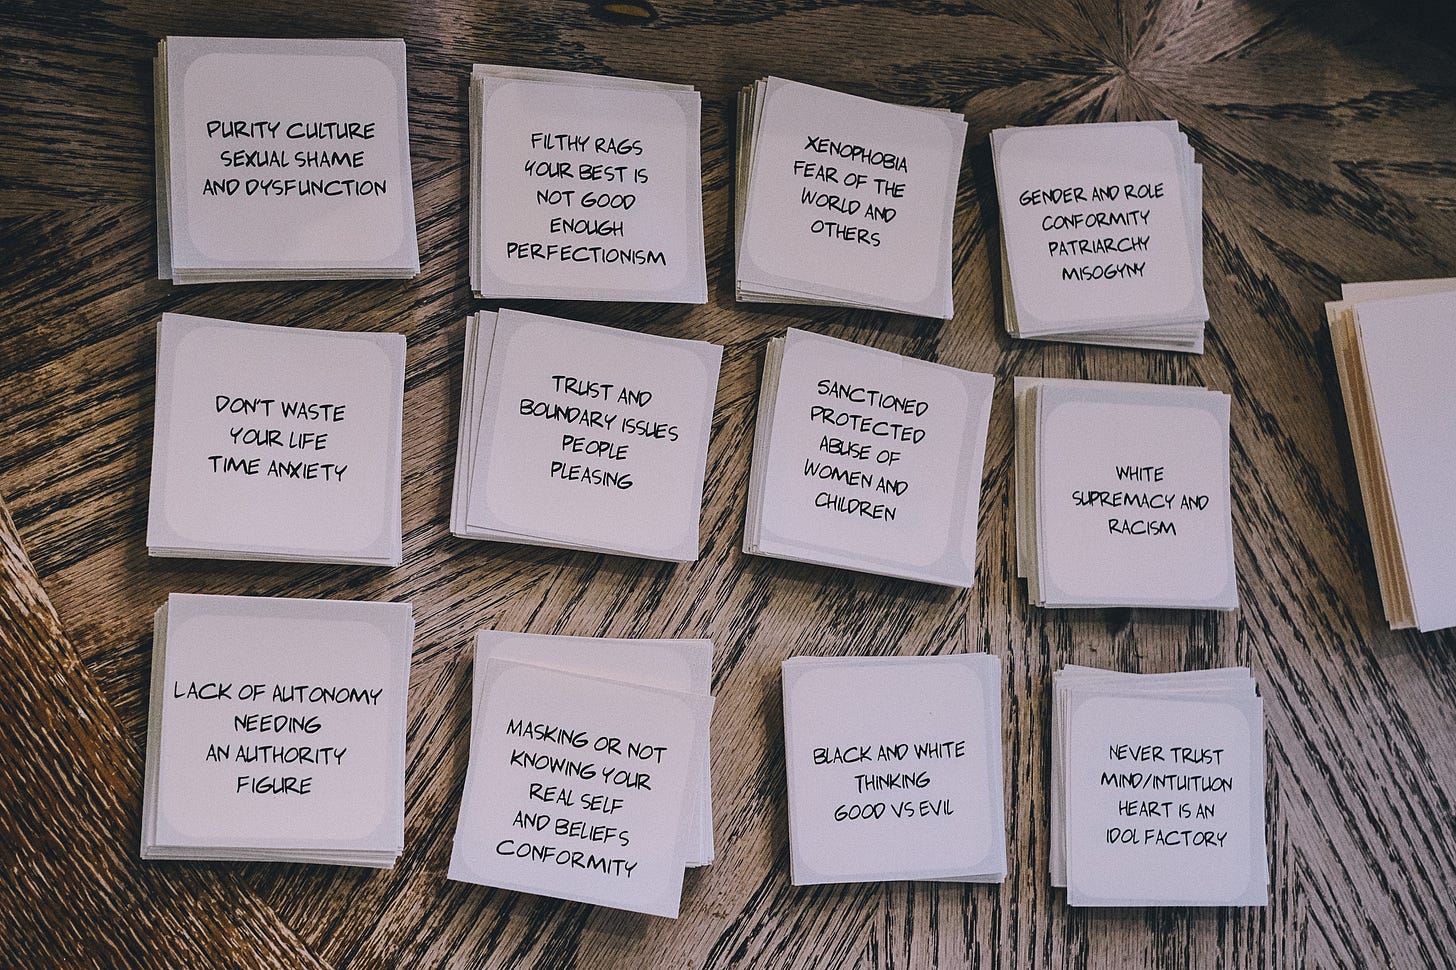 PURITY CULTURE
SEXUAL SHAME
AND DYSFUNCTION
FILTHY RAGS
YOUR BEST IS
NOT GOOD
ENOUGH
PERFECTIONISM
XENOPHOBIA
FEAR OF THE
WORLD AND
OTHERS
GENDER AND ROLE
CONFORMITY
PATRIARCHY
MISOGYNY
DON'T WASTE
YOUR LIFE
TIME ANXIETY
TRUST AND
BOUNDARY ISSUES
PEOPLE
PLEASING
SANCTIONED
PROTECTED
ABUSE OF
WOMEN AND
CHILDREN
WHITE
SUPREMACY AND
RACISM
LACK OF AUTONOMY
NEEDING
AN AUTHORITY
FIGURE
MASKING OR NOT
KNOWING YOUR
REAL SELF
AND BELIEFS
CONFORMITY
BLACK AND WHITE
THINKING
GOOD VS EVIL
NEVER TRUST
MIND/INTUITUION
HEART IS AN
IDOL FACTORY